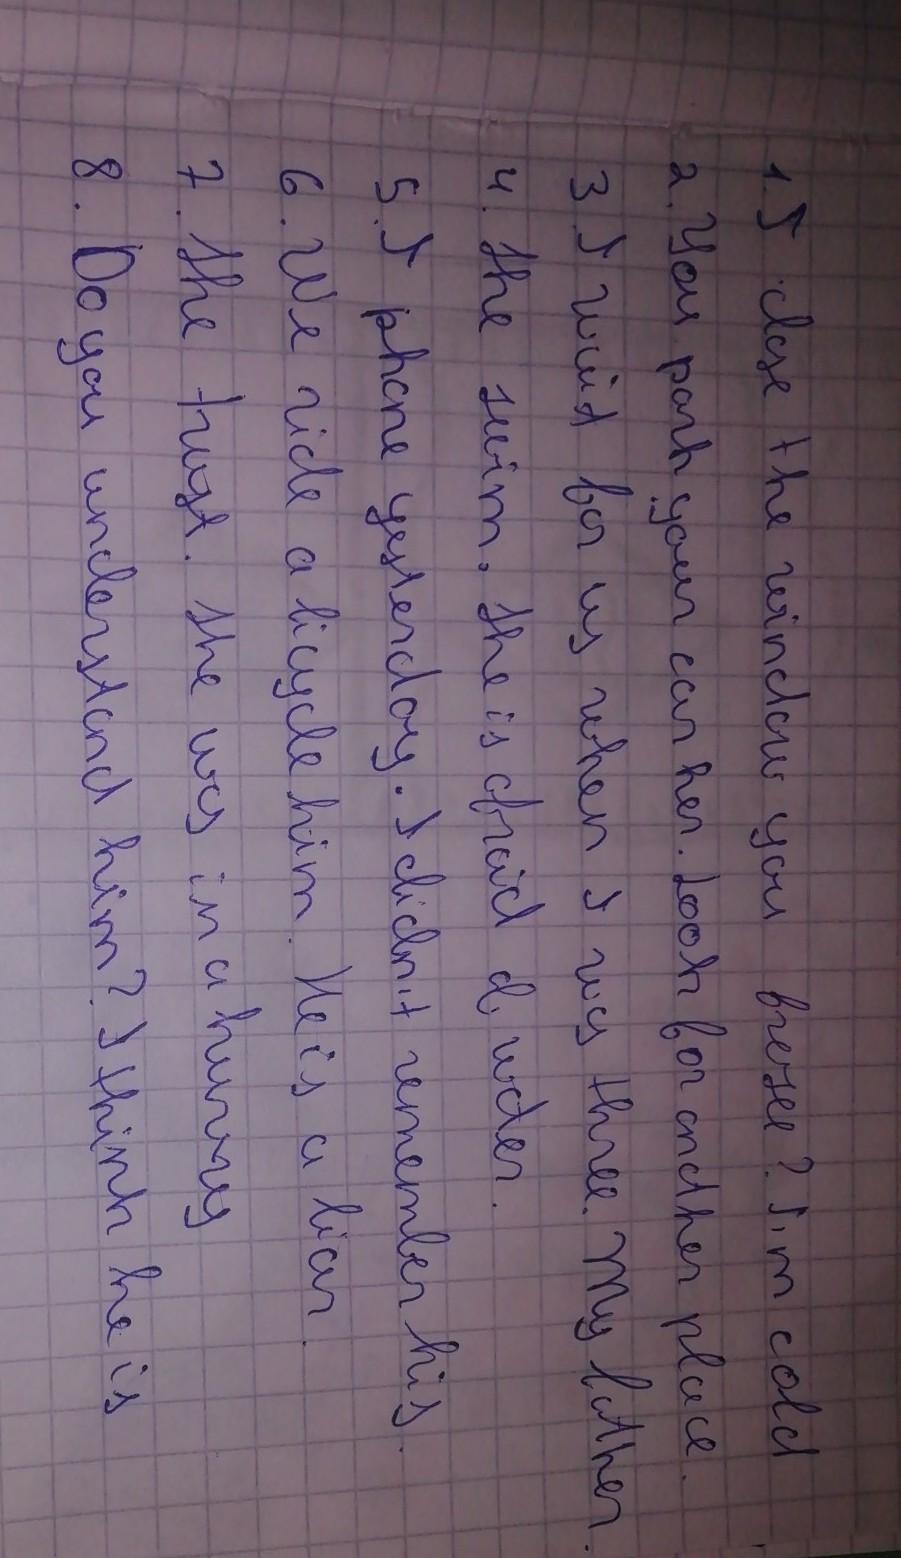 1. I close the window you frezee? I'm cold
2. You park your car her. Look for another place.
3. I wait for us when I was three. My father.
4. The swim. The is afraid of water.
5. I phone yesterday. I didn't remember his.
6. We ride a bicycle him. He is a liar.
7. The trust. The was in a hurry
8. Do you understand him? I think he is